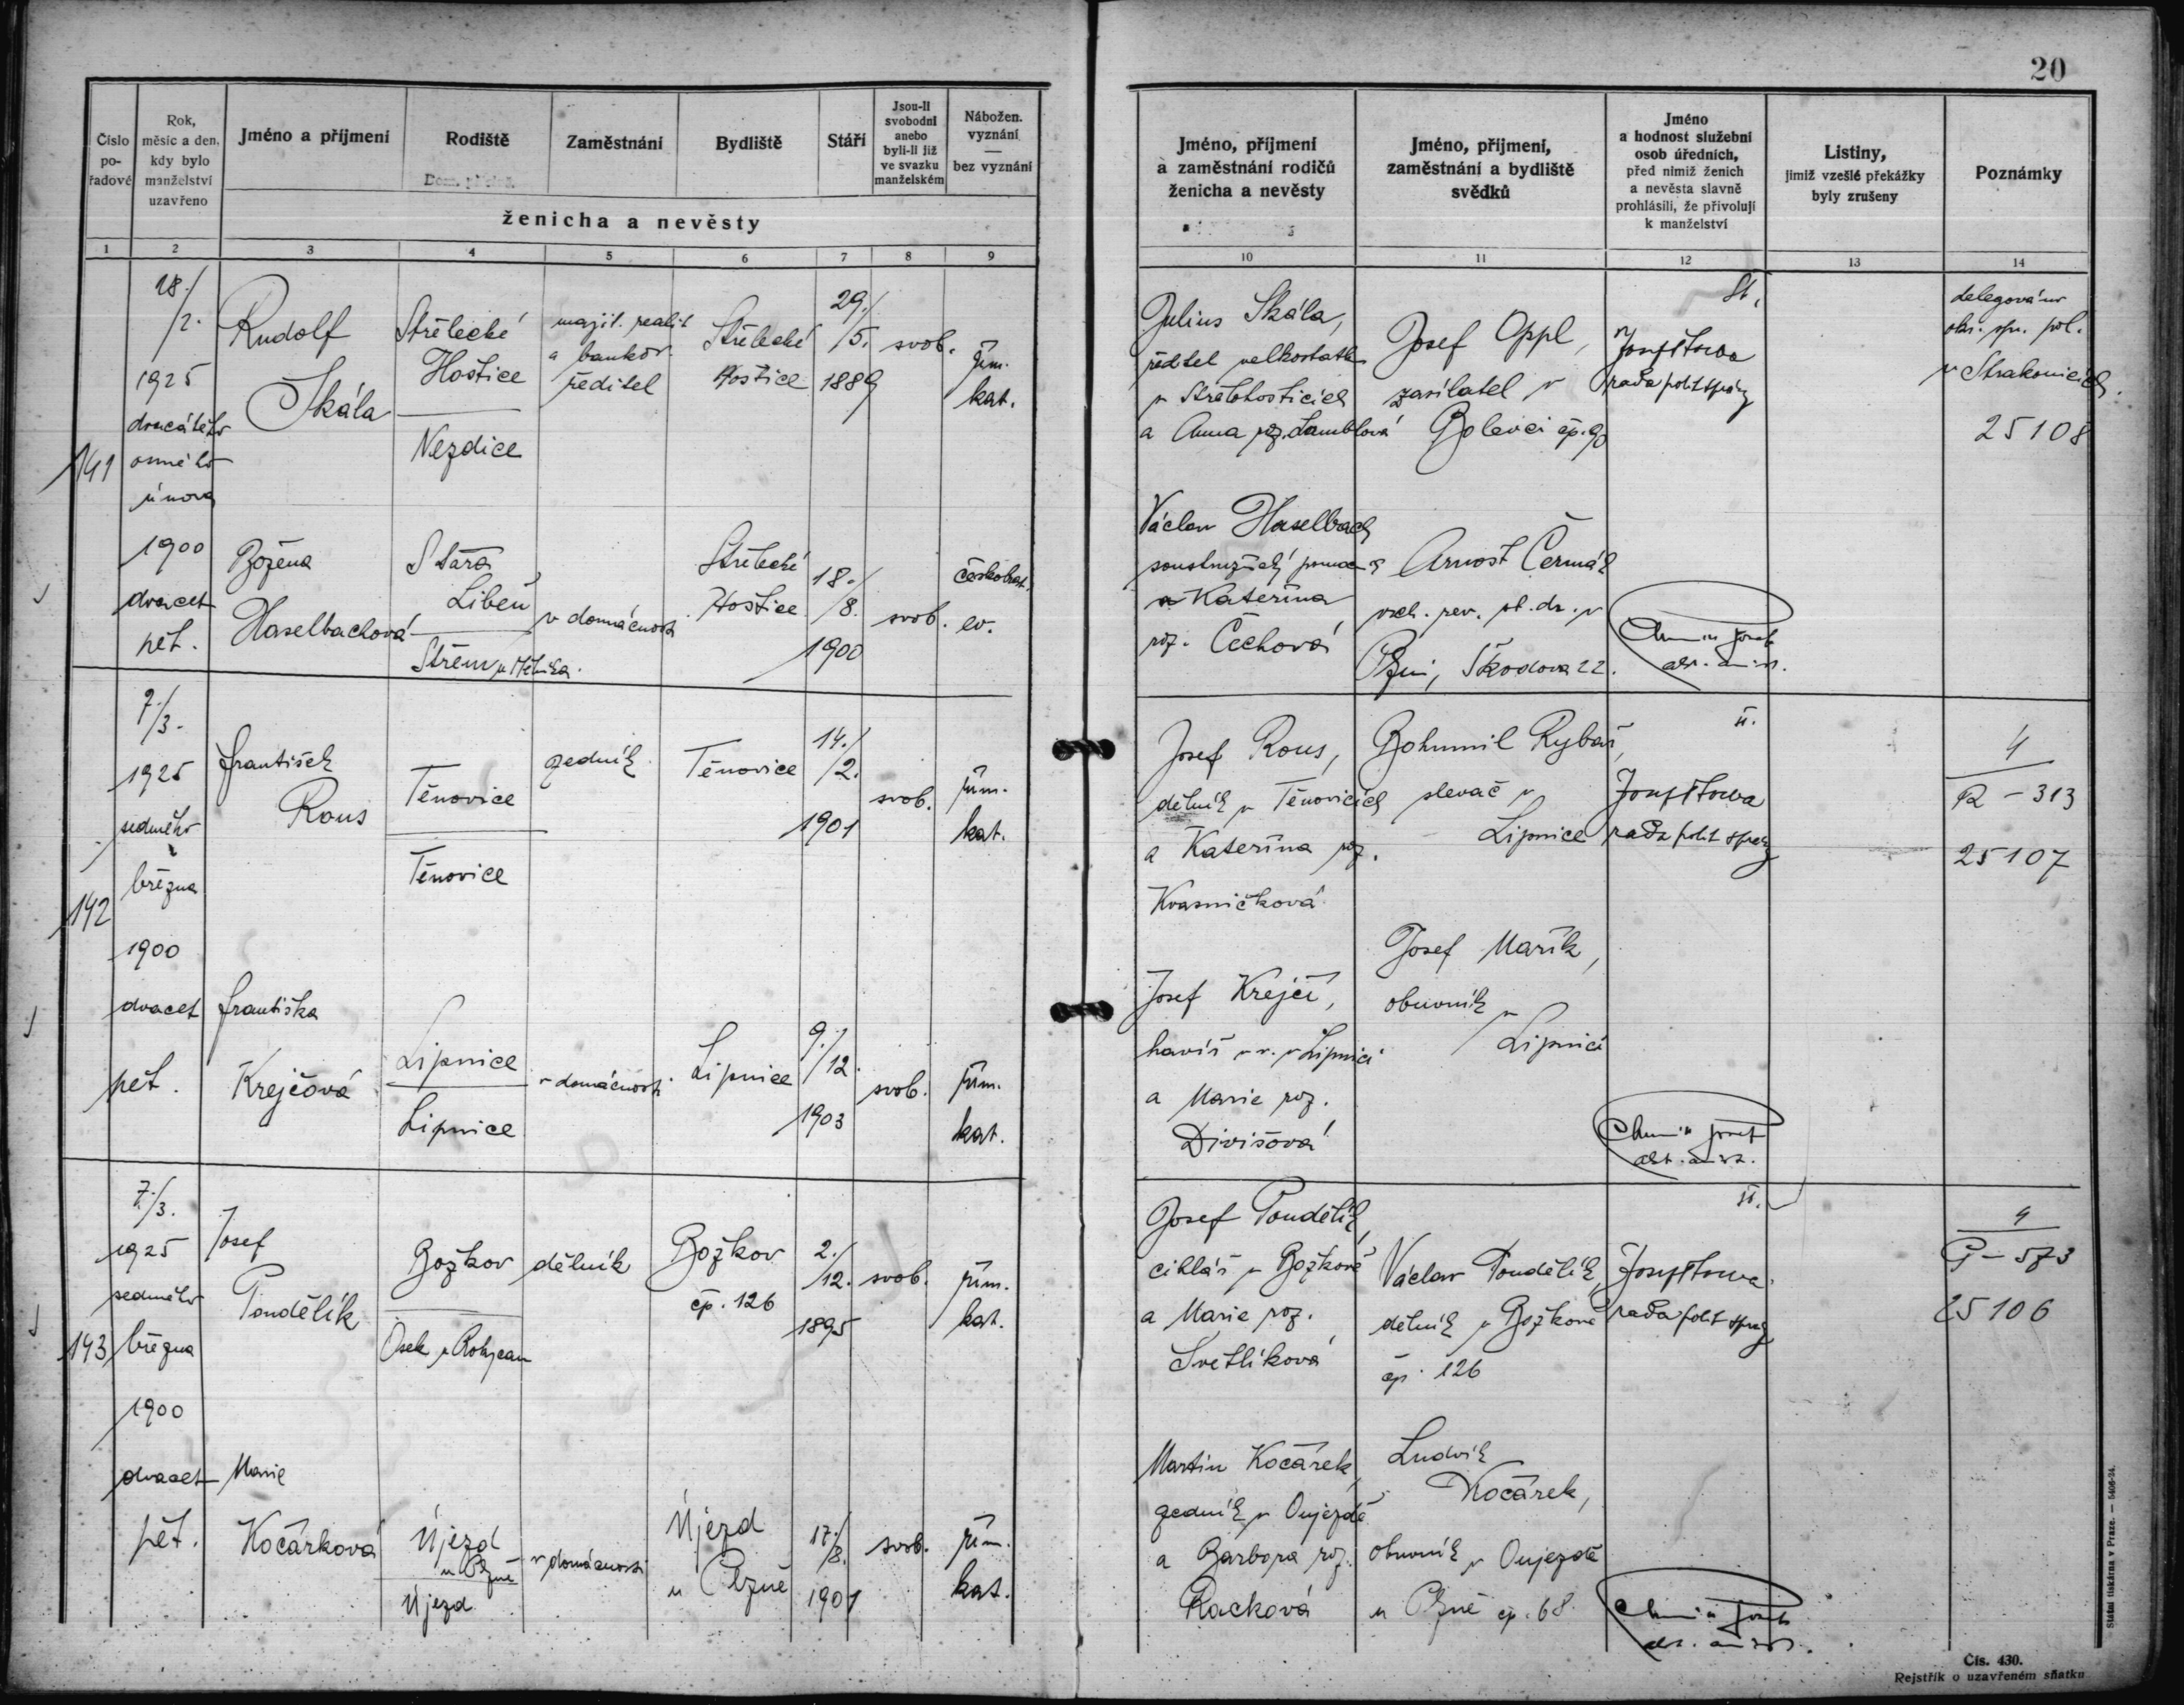 20
Číslo po-řadové
Rok, měsíc a den, kdy bylo manželství uzavřeno
Jméno a příjmení
Rodiště
Zaměstnání
Bydliště
Stáří
Jsou-li svobodni anebo byli-li již ve svazku manželském
Nábožen. vyznání — bez vyznání
ženicha a nevěsty
Jméno, příjmení a zaměstnání rodičů ženicha a nevěsty
Jméno, příjmení, zaměstnání a bydliště svědků
Jméno a hodnost služební osob úředních, před nimiž ženich a nevěsta slavně prohlásili, že přivolují k manželství
Listiny, jimiž vzešlé překážky byly zrušeny
Poznámky
1 2 3 4 5 6 7 8 9 10 11 12 13 14
141
28./2.
1925
dvacátého
osmého
února
1900
dvacet
pět.
Rudolf
Skála
Střelecké
Hoštice
Nezdice
majit. realit
a bankov.
ředitel
Střelecké
Hoštice
29./5.
1889
svob.
řím.
kat.
Julius Skála,
ředitel velkostatk
v Střelohosticích
a Anna roz. Lamblová
Josef Oppl,
zasílatel v
Bolevci čp. 90
rada polit správy
delegován
okr. spr. pol.
v Strakonicích.
25108
Božena
Haselbachová
Stará
Libeň
Střem u Mělníka.
v domácnosti
Střelecké
Hoštice
18./8.
1900
svob.
českobrat.
ev.
Václav Haselbach
soustružnický pomocník
a Kateřina
roz. Čechová
Arnošt Čermák
vrch. rev. st. dr. v
Plzni, Škodova 22.
142
7./3.
1925
sedmého
března
1900
dvacet
pět.
František
Rous
Těnovice
Těnovice
zedník
Těnovice
14./2.
1901
svob.
řím.
kat.
Josef Rous,
dělník v Těnovicích
a Kateřina roz.
Kvasničková
Bohumil Rybář,
slevač v
Lipnice
rada polit správy
4
R – 313
25107
Františka
Krejčová
Lipnice
Lipnice
v domácnosti
Lipnice
9./12.
1903
svob.
řím.
kat.
Josef Krejčí,
havíř v v. v Lipnici
a Marie roz.
Divišová
Josef Mařík,
obuvník
v
Lipnici
143
7./3.
1925
sedmého
března
1900
dvacet
pět.
Josef
Pondělík
Božkov
Osek u Rokycan
dělník
Božkov
čp. 126
2./12.
1895
svob.
řím.
kat.
Josef Pondělík,
cihlář v Božkově
a Marie roz.
Světlíková
Václav Pondělík,
dělník v Božkově
čp. 126
rada polit správy
4
P – 573
25106
Marie
Kočárková
Újezd
u Plzně
Újezd
v domácnosti
Újezd
u Plzně
17./8.
1901
svob.
řím.
kat.
Martin Kočárek,
zedník v Oujezdě
a Barbora roz.
Racková
Ludvík
Kočárek,
obuvník v Oujezdě
u Plzně čp. 68.
Státní tiskárna v Praze. — 5406-24.
Čís. 430.
Rejstřík o uzavřeném sňatku